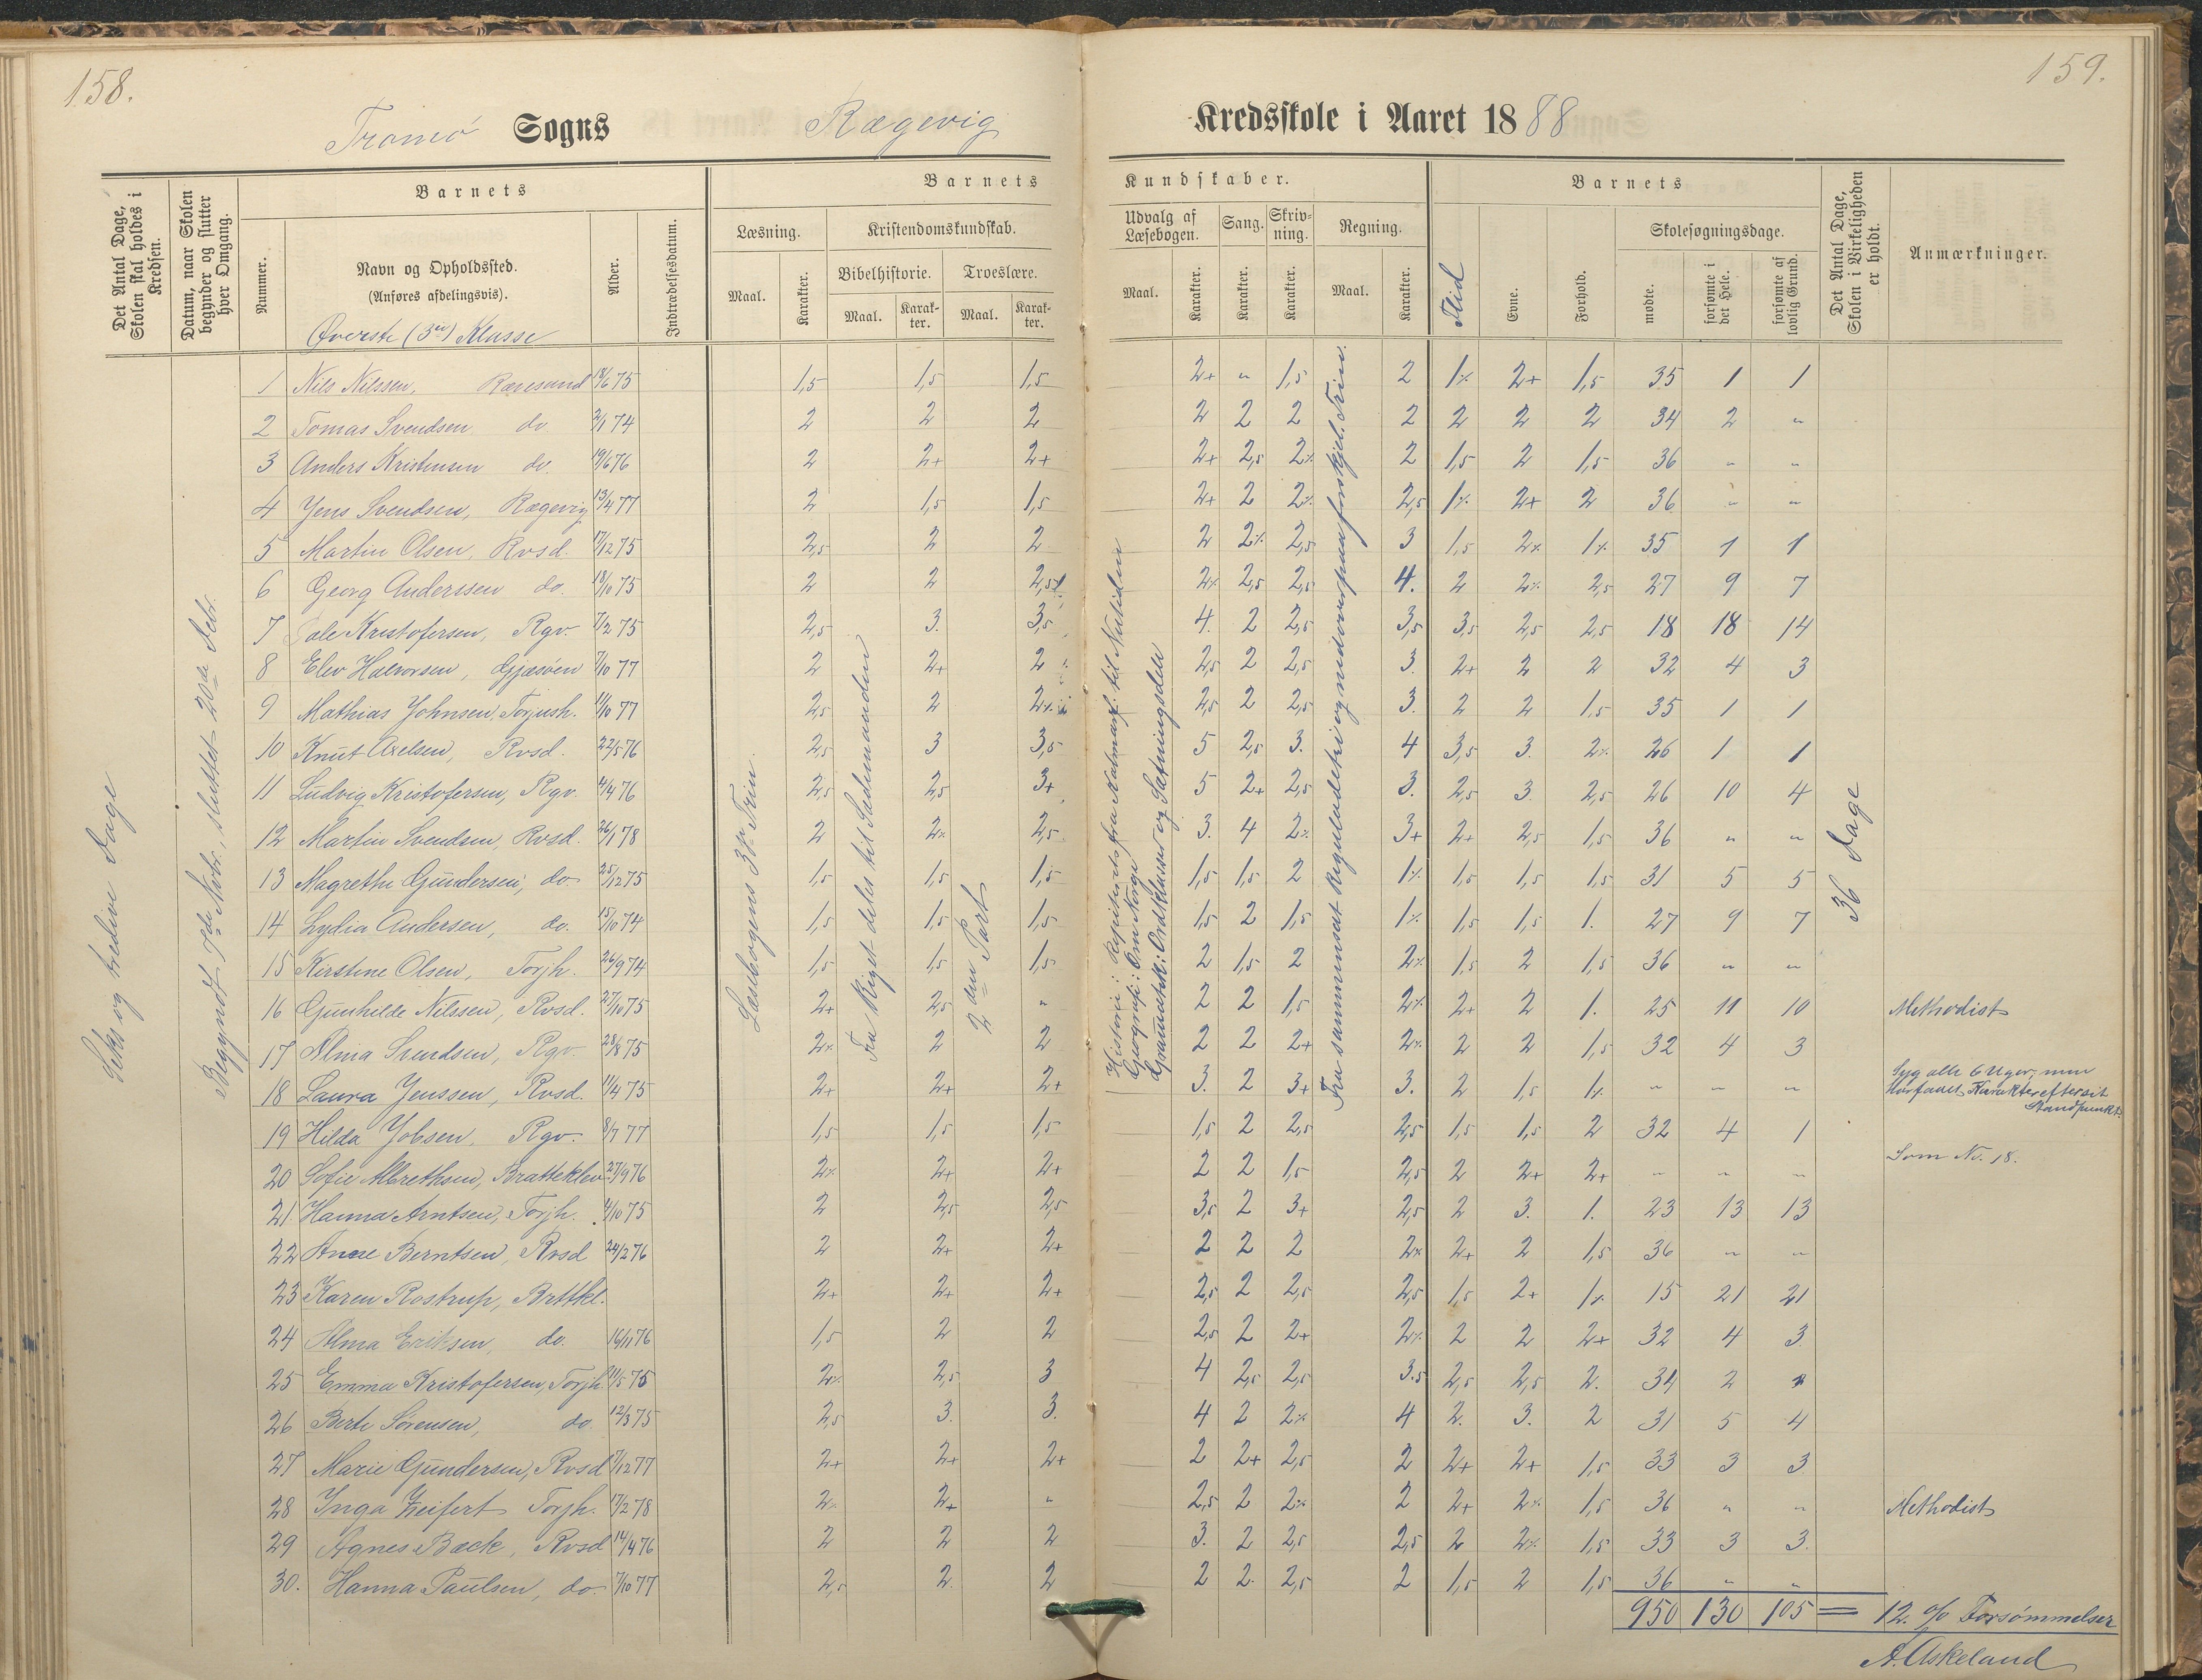 158.
159.
Tromø Sogns Rægevig Kredsskole i Aaret 1888
Det Antal Dage, Skolen skal holdes i Kredsen.
Datum, naar Skolen begynder og slutter hver Omgang.
Barnets
Nummer.
Navn og Opholdssted.
(Anføres afdelingsvis).
Øverste (3die) Klasse
Alder.
Indtrædelsesdatum.
Barnets Kundskaber.
Læsning. Kristendomskundskab. Udvalg af Læsebogen. Sang. Skrivning. Regning.
Bibelhistorie. Troeslære.
Maal. Karakter. Maal. Karakter. Maal. Karakter. Maal. Karakter. Karakter. Karakter. Maal. Karakter.
Barnets
Flid Evne. Forhold.
Skolesøgningsdage.
mødte. forsømte i det Hele. forsømte af lovlig Grund.
Det Antal Dage, Skolen i Virkeligheden er holdt.
Anmærkninger.
Seks og tredive Dage
Begyndt 7de Novbr., sluttet 20de Debr.
Læsebogens 3die Trin.
Fra Riget deles til Sædemaanden
2den Part
Historie: Repiteret fra Kalmarf. til Nutiden
Geografi: Om Norge
Gramatik: Ordklasser og Sætningsdele
Fra sammensat Reguladetri og nedover paa forskjel. Trin.
36 Dage
1 Nils Nilssen, Rævesand 18/6 75 1,5 1,5 1,5 2+ " 1,5 2 1% 2+ 1,5 35 1 1
2 Tomas Svendsen do 2/1 74 2 2 2 2 2 2 2 2 2 2 34 2 "
3 Anders Kristensen do. 19/6 76 2 2+ 2+ 2+ 2,5 2% 2 1,5 2 1,5 36 " "
4 Jens Svendsen, Rægevig 13/4 77 2 1,5 1,5 2+ 2 2% 2,5 1% 2+ 2 36 " "
5 Martin Olsen, Rvsd. 17/12 75 2,5 2 2 2 2% 2,5 3 1,5 2% 1% 35 1 1
6 Georg Anderssen do. 18/10 75 2 2 2,5 2% 2,5 2,5 4. 2 2% 2,5 27 9 7
7 Oale Kristofersen, Rgv. 7/2 75 2,5 3. 3,5 4. 2 2,5 3,5 3,5 2,5 2,5 18 18 14
8 Elev Halvorsen, Gjæsøen 7/10 77 2 2+ 2 2,5 2 2,5 3. 2+ 2 2 32 4 3
9 Mathias Johnsen, Torjush. 11/10 77 2,5 2 2% 2,5 2 2,5 3. 2 2 1,5 35 1 1
10 Knut Axelsen, Rvsd. 22/5 76 2,5 3 3,5 5 2,5 3. 4 3,5 3. 2% 26 1 1
11 Ludvig Kristofersen, Rgv. 4/4 76 2,5 2,5 3+ 5 2+ 2,5 3. 2,5 3 2,5 26 10 4
12 Martin Svendsen, Rvsd. 26/1 78 2 2% 2,5 3. 4 2% 3+ 2+ 2,5 1,5 36 " "
13 Magrethe Gundersen, do 25/12 75 1,5 1,5 1,5 1,5 1,5 2 1% 1,5 1,5 1,5 31 5 5
14 Lydia Andersen, do. 15/10 74 1,5 1,5 1,5 1,5 2 1,5 1% 1,5 1,5 1. 27 9 7
15 Kirstine Olsen, Torjh. 26/9 74 1,5 1,5 1,5 2 1,5 2 2% 1,5 2 1,5 36 " "
16 Gunhilde Nilssen, Rvsd. 27/10 75 2+ 2,5 " 2 2 1,5 2% 2+ 2 1. 25 11 10 Methodist
17 Alma Svendsen, Rgv. 28/8 75 2% 2 2 2 2 2+ 2% 2 2 1,5 32 4 3
18 Laura Jenssen, Rvsd. 11/4 75 2+ 2+ 2+ 3. 2 3+ 3. 2 1,5 1% " " " Syg alle 6 Uger; men
Har faaet Karakter efter sit
Standpunkt.
19 Hilda Jobsen, Rgv. 8/7 77 1,5 1,5 1,5 1,5 2 2,5 2,5 1,5 1,5 2 32 4 1
20 Sofie Albrethsen, Bratteklev 27/9 76 2% 2+ 2+ 2 2 1,5 2,5 2 2+ 2+ " " " Som No. 18.
21 Hanna Arntsen, Torjh. 4/10 75 2 2,5 2,5 3,5 2 3+ 2,5 2 3. 1. 23 13 13
22 Anne Berntsen, Rvsd 24/2 76 2 2+ 2+ 2 2 2 2% 2+ 2 1,5 36 " "
23 Karen Rostrup, Brttkl. 2+ 2+ 2+ 2,5 2 2,5 2,5 1,5 2+ 1% 15 21 21
24 Alma Eriksen, do. 16/11 76 1,5 2 2 2,5 2 2+ 2% 2 2 2+ 32 4 3
25 Emma Kristofersen, Torjh. 11/5 75 2% 2,5 3 4 2,5 2,5 3.5 2,5 2,5 2. 34 2
26 Berte Sørensen, do. 12/3 75 2,5 3. 3. 4 2 2% 4 2. 3. 2 31 5 4
27 Marie Gundersen, Rvsd 7/12 77 2+ 2+ 2+ 2 2+ 2,5 2 2+ 2+ 1,5 33 3 3
28 Inga Zeifert Torjh. 17/2 78 2% 2+ " 2,5 2 2% 2 2+ 2% 1,5 36 " " Methodist
29 Agnes Back, Rvsd 14/4 76 2 2 2 3. 2 2,5 2,5 2 2% 1,5 33 3 3.
30. Hanna Paulsen, do. 7/10 77 2,5 2. 2 2 2. 2,5 2 1,5 2 1,5 36 " "
950 130 105 = 12. % Forsømmelser
A. Askeland